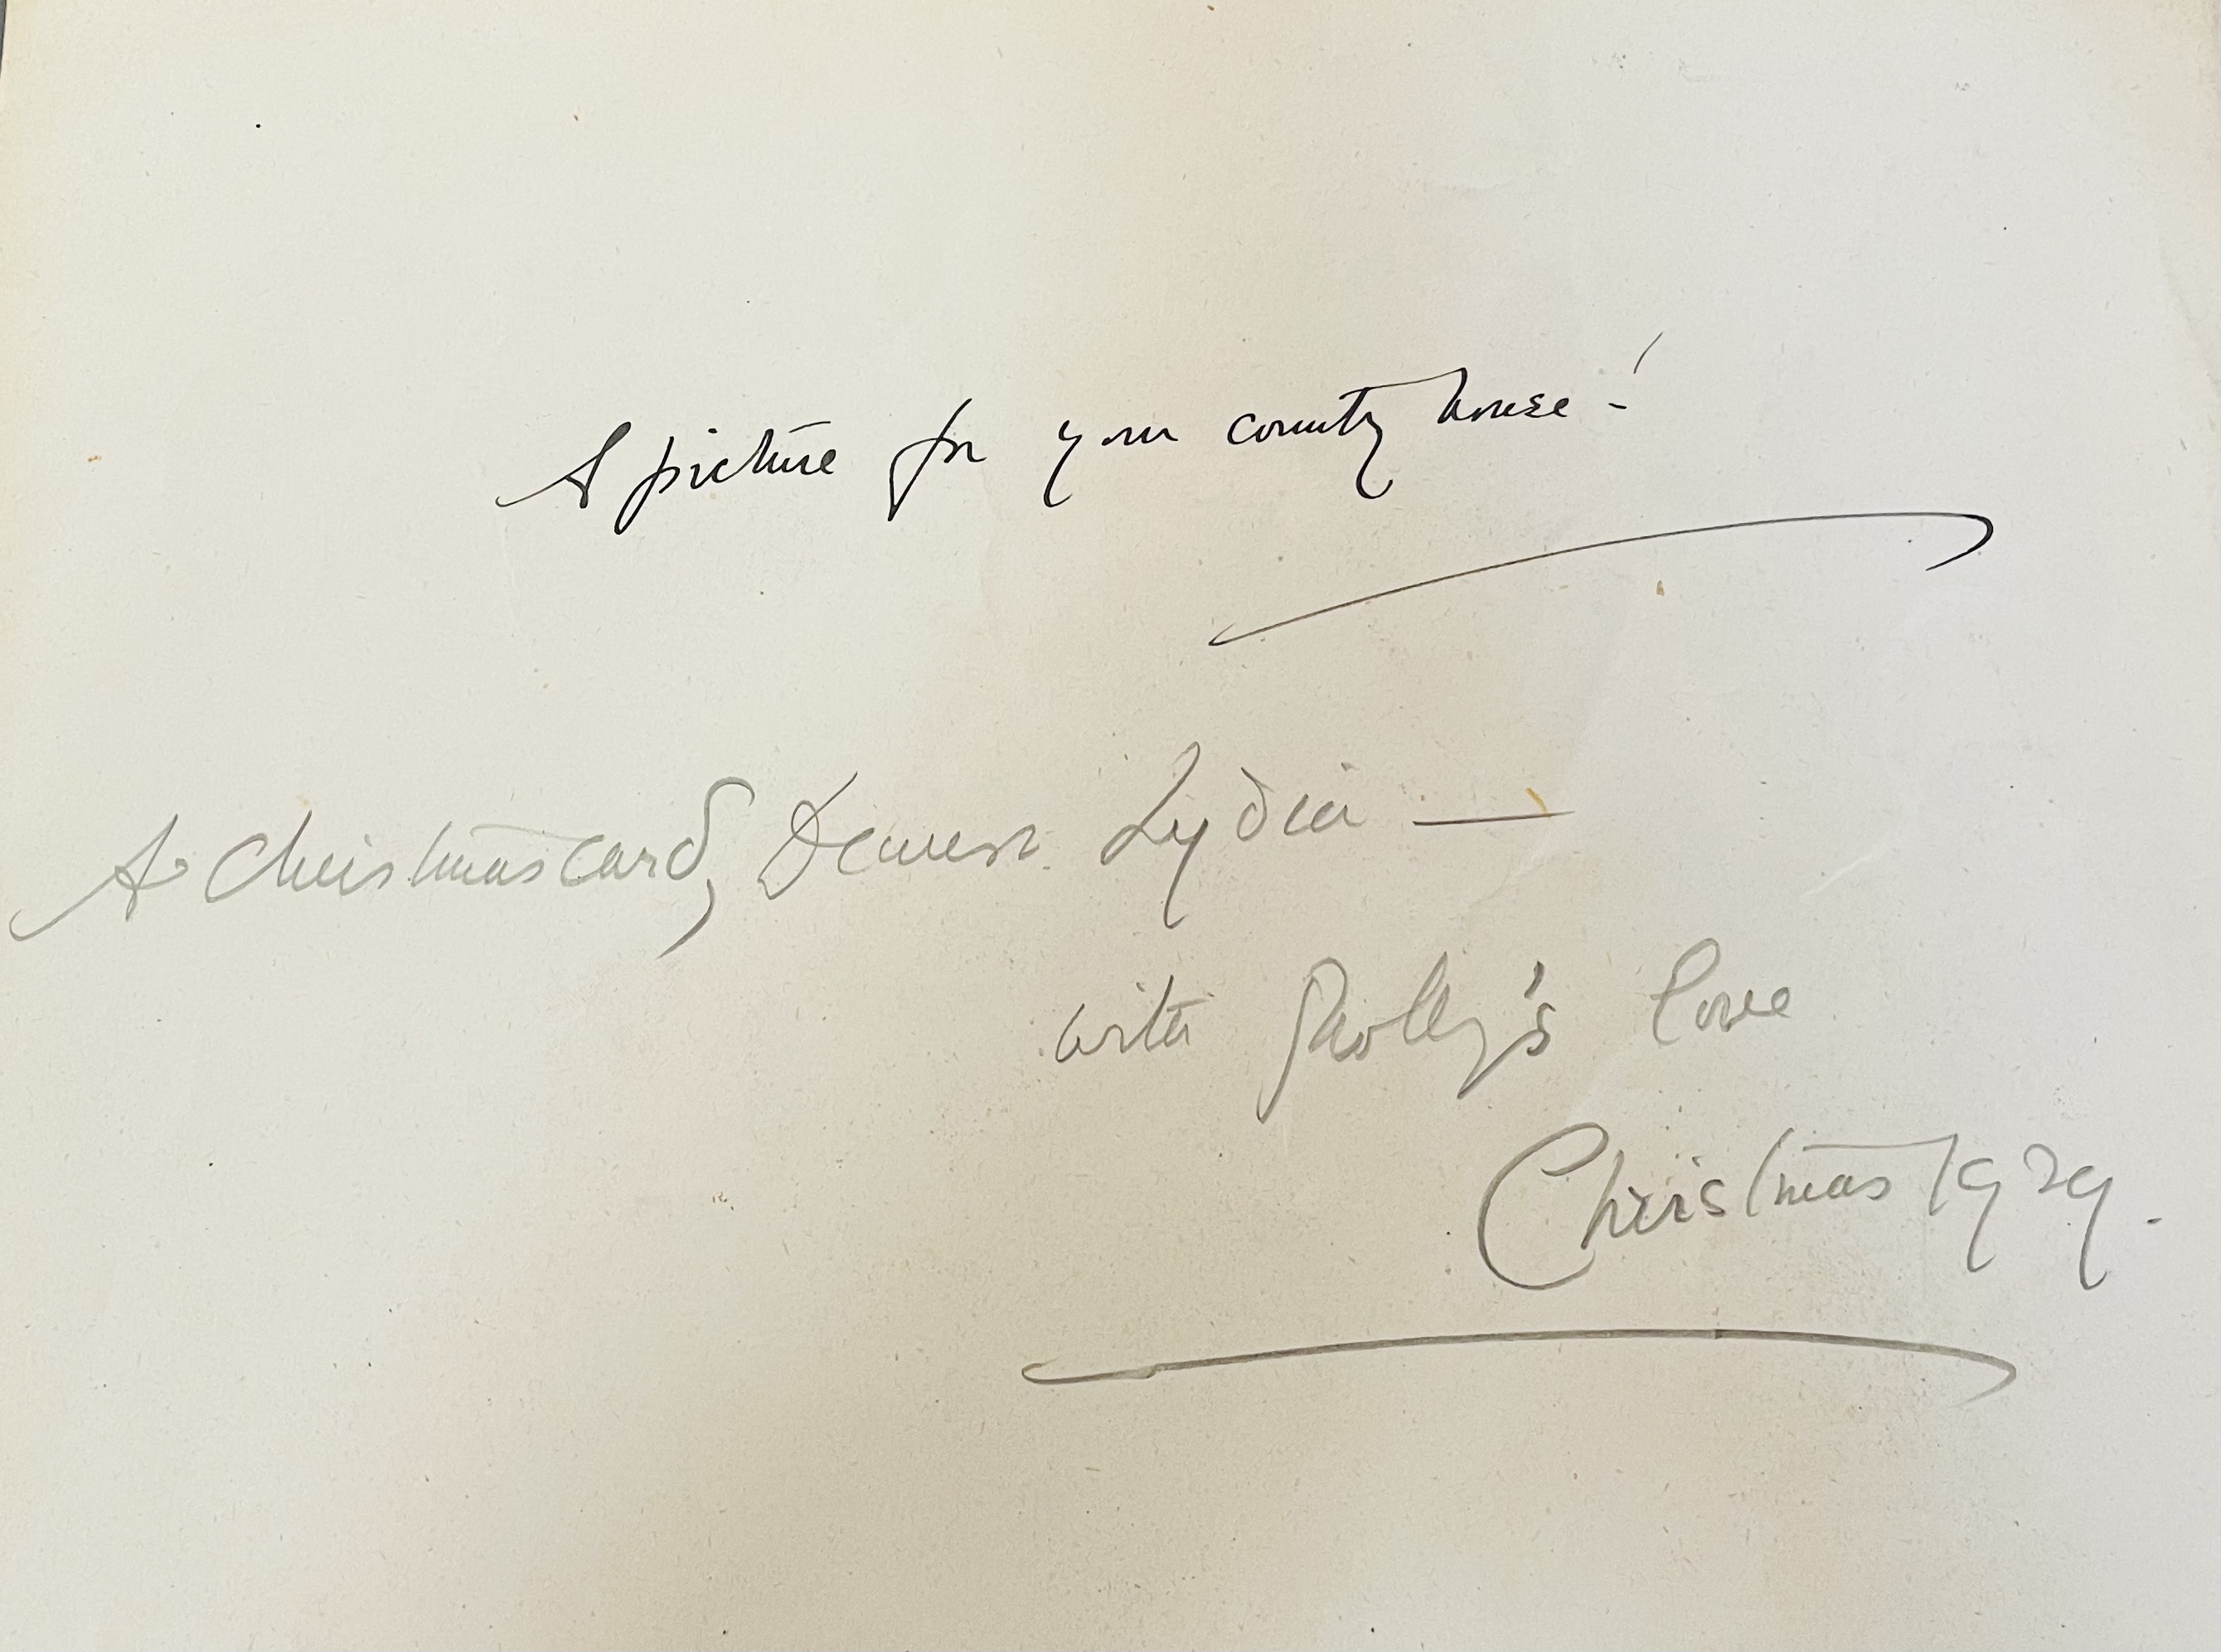 A picture for your country house!
A Christmas card, Dearest Lydia —
with Polly's love
Christmas 1929.